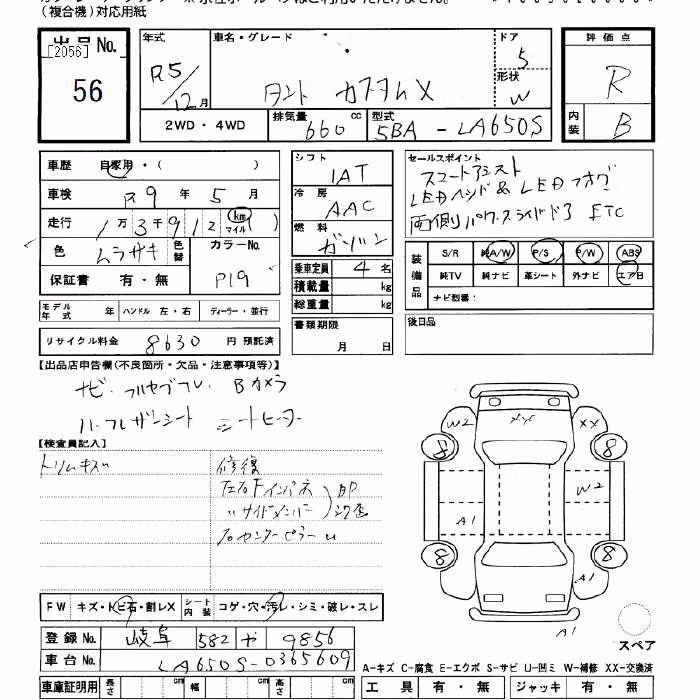 (複合機)対応用紙
出品No.
[2056]
56
年式 R5/12月
車名・グレード タント カスタムX
ドア 5
形状 W
評価点 R
内装 B
2WD・4WD
排気量 660 cc
型式 5BA-LA650S
車歴 自家用・( )
車検 R9年5月
走行 1万3千912 km マイル ( )
色 ムラサキ 色替
カラーNo. P19
保証書 有・無
シフト IAT
冷房 AAC
燃料 ガソリン
乗車定員 4名
積載量 kg
総重量 kg
書類期限 月 日
セールスポイント
スマートアシスト
LEDヘッド & LEDフォグ
両側パワースライドドア ETC
装備品 S/R 純A/W P/S P/W ABS
純TV 純ナビ 革シート 外ナビ エアB
ナビ型番:
後日品
モデル年式 年 ハンドル 左・右 ディーラー・並行
リサイクル料金 8630 円 預託済
【出品店申告欄(不良箇所・欠品・注意事項等)】
ナビ・フルセグフルレ Bカメラ
ハーフレザーシート シートヒーター
【検査員記入】
トリムキズ
修復
左右Fインパネ
〃サイドメンバー
BP
右センターピラー
W2 XX XX
8 8
W2
A1
8 8
A1
A1
スペア
FW キズ・トビ石・割レX
シート内装 コゲ・穴・汚レ・シミ・破レ・スレ
登録No. 岐阜 582 や 9856
車台No. LA650S-0365609
A-キズ C-腐食 E-エクボ S-サビ U-凹ミ W-補修 XX-交換済
車庫証明用 長さ cm 幅 cm 高さ cm
工具 有・無 ジャッキ 有・無